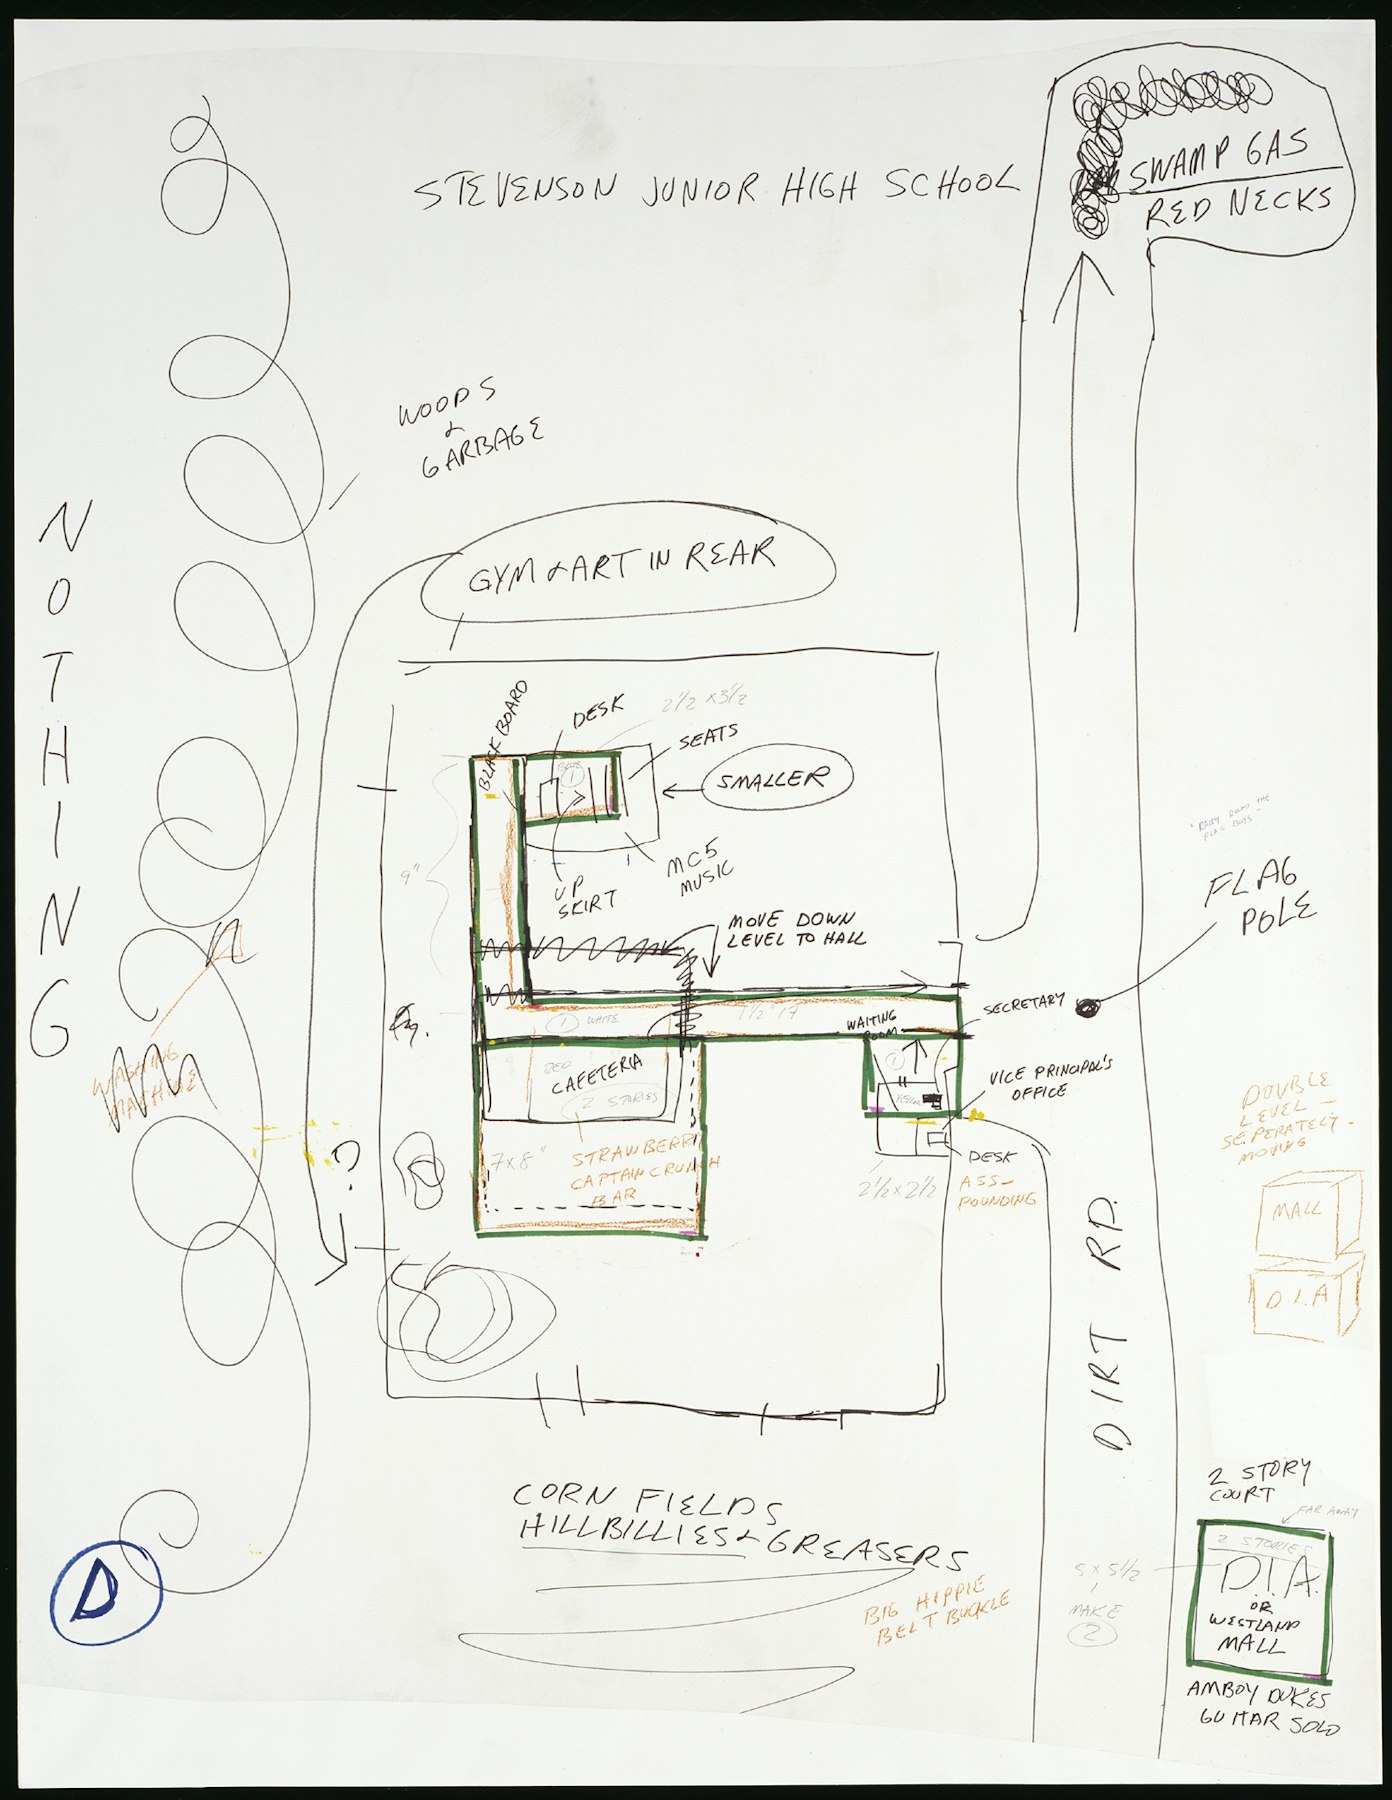 SWAMP GAS
RED NECKS
STEVENSON JUNIOR HIGH SCHOOL
WOODS
&
GARBAGE
NOTHING
GYM & ART IN REAR
BLACKBOARD
DESK
2 1/2 x 3 1/2
SEATS
SMALLER
1
9"
UP
SKIRT
MC5
MUSIC
MOVE DOWN
LEVEL TO HALL
FLAG
POLE
SECRETARY
1 WHITE
1 1/2 17
WAITING
ROOM
1
RED
CAFETERIA
2 STORIES
VICE PRINCIPAL'S
OFFICE
WASHING
MACHINE
7 x 8"
STRAWBERRY
CAPTAIN CRUNCH
BAR
DESK
2 1/2 x 2 1/2
ASS-
POUNDING
?
DOUBLE
LEVEL -
SEPERATELY -
MOVING
MALL
D.I.A
DIRT RD.
CORN FIELDS
HILLBILLIES & GREASERS
BIG HIPPIE
BELT BUCKLE
2 STORY
COURT
FAR AWAY
2 STORIES
5 x 5 1/2
MAKE
2
D.I.A.
OR
WESTLAND
MALL
AMBOY DUKES
GUITAR SOLO
D